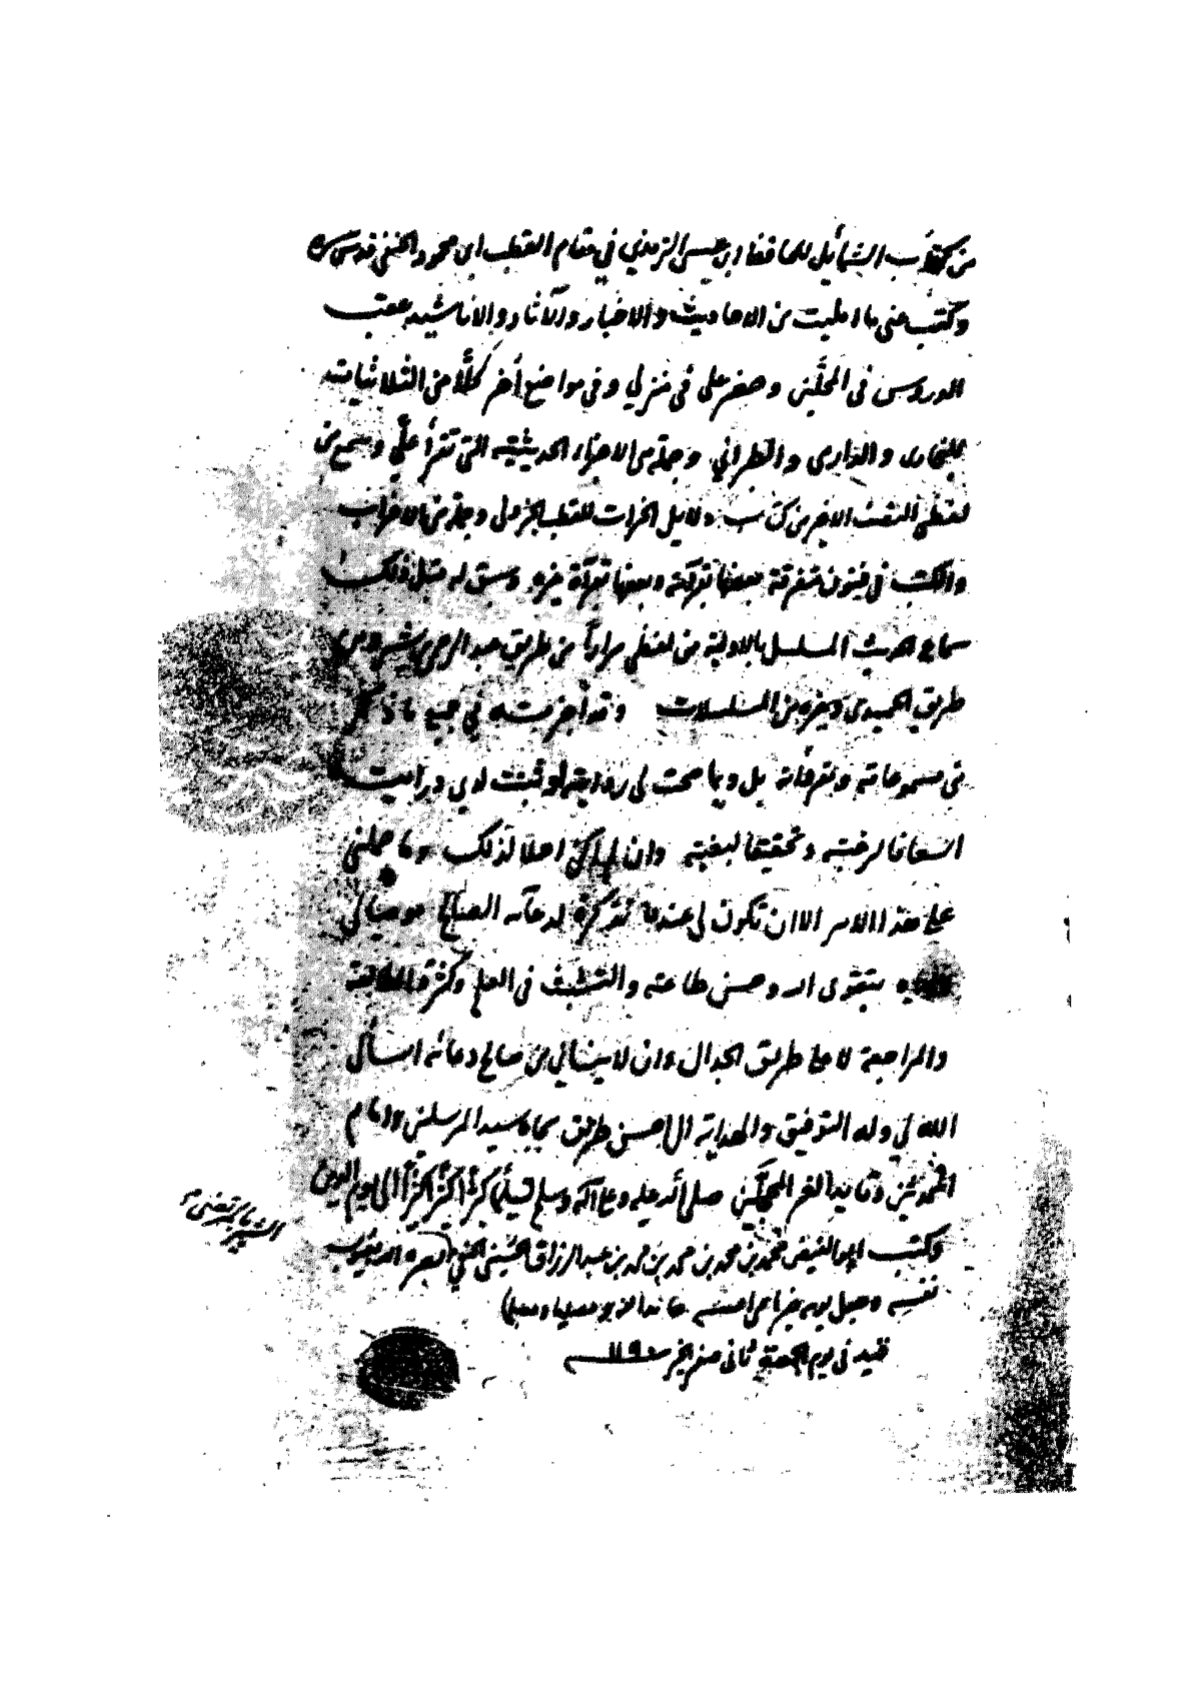 من كتاب الشمائل للحافظ ابن عيسى الترمذي في مقام القطب ابن محمود الحنفي قدس سره
وكتب عني ما امليت من الاحاديث والاخبار والآثار والاناشيد عقب
الدروس في المحلين وحضر علي في منزلي وفي مواضع أخر كلًّا من الثلاثيات
للبخاري والدارمي والطبراني وجملة من الاجزاء الحديثية التي تقرأ عليّ وسمع من
لفظي النصف الاخير من كتاب دلايل الخيرات للقطب الجزولي وجملة من الاحزاب
والكتب في فنون متفرقة بعضها بقرآته وبعضها بقرآة غيره وسبق له قبل ذلك
سماع الحديث المسلسل بالاولية من لفظي مرارا من طريق عبد الرحمن بن بشر ومن
طريق الحميدي وغيره من المسلسلات وقد أجزته في جميع ما ذكر
من مسموعاته ومقرؤاته بل وبما صحت لي روايته او ثبتت لدي درايته
اسعافا لرغبته وتحقيقا لبغيته وان لم اكن اهلا لذلك وما حملني
على هذا الامر الا ان تكون لي عنده تذكرة لدعآئه الصالح موصيا لي
بتقوى الله وحسن طاعته والتثبت في العلم وكثرة المطالعة
والمراجعة لا على طريق الجدال وان لا ينساني من صالح دعائه اسأل
الله لي وله التوفيق والهداية الى احسن طريق بجاه سيد المرسلين وامام
المحجلين صلى الله عليه وعلى آله وسلم تسليما كثيرا كثيرا كثيرا الى يوم الدين
وكتب ابو الفيض محمد بن محمد بن محمد بن محمد بن عبد الرزاق الحسيني الحنفي بصره الله بعيوب
نفسه وجعل يومه خيرا من امسه حامدا لله ومصليا ومسلما
قيد في يوم الجمعة ثاني صفر الخير ١١٩٠
الشهير بالمرتضى